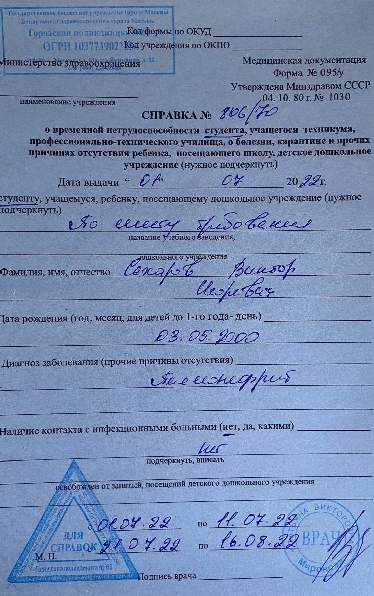 Государственное бюджетное учреждение города Москвы
Департамента здравоохранения города Москвы
Городская поликлиника
ОГРН 103773902
Код формы по ОКУД
Код учреждения по ОКПО
Министерство здравоохранения
Медицинская документация
Форма № 095/у
Утверждена Минздравом СССР
04. 10. 80 г. № 1030
наименование учреждения
СПРАВКА № 806/70
о временной нетрудоспособности студента, учащегося техникума,
профессионально-технического училища, о болезни, карантине и прочих
причинах отсутствия ребенка, посещающего школу, детское дошкольное
учреждение (нужное подчеркнуть)
Дата выдачи " 01 07 2022г.
студенту, учащемуся, ребенку, посещающему дошкольное учреждение (нужное
подчеркнуть)
По месту требования
название учебного заведения,
дошкольного учреждения
Фамилия, имя, отчество Сахаров Виктор
Игоревич
Дата рождения (год, месяц, для детей до 1-го года - день)
03.05.2000
Диагноз заболевания (прочие причины отсутствия)
Пиелонефрит
Наличие контакта с инфекционными больными (нет, да, какими)
нет
подчеркнуть, вписать
освобожден от занятий, посещений детского дошкольного учреждения
с 01.07.22 по 11.07.22
21.07.22 по 16.08.22
ДЛЯ
СПРАВОК
ВРАЧ
М. П.
Подпись врача